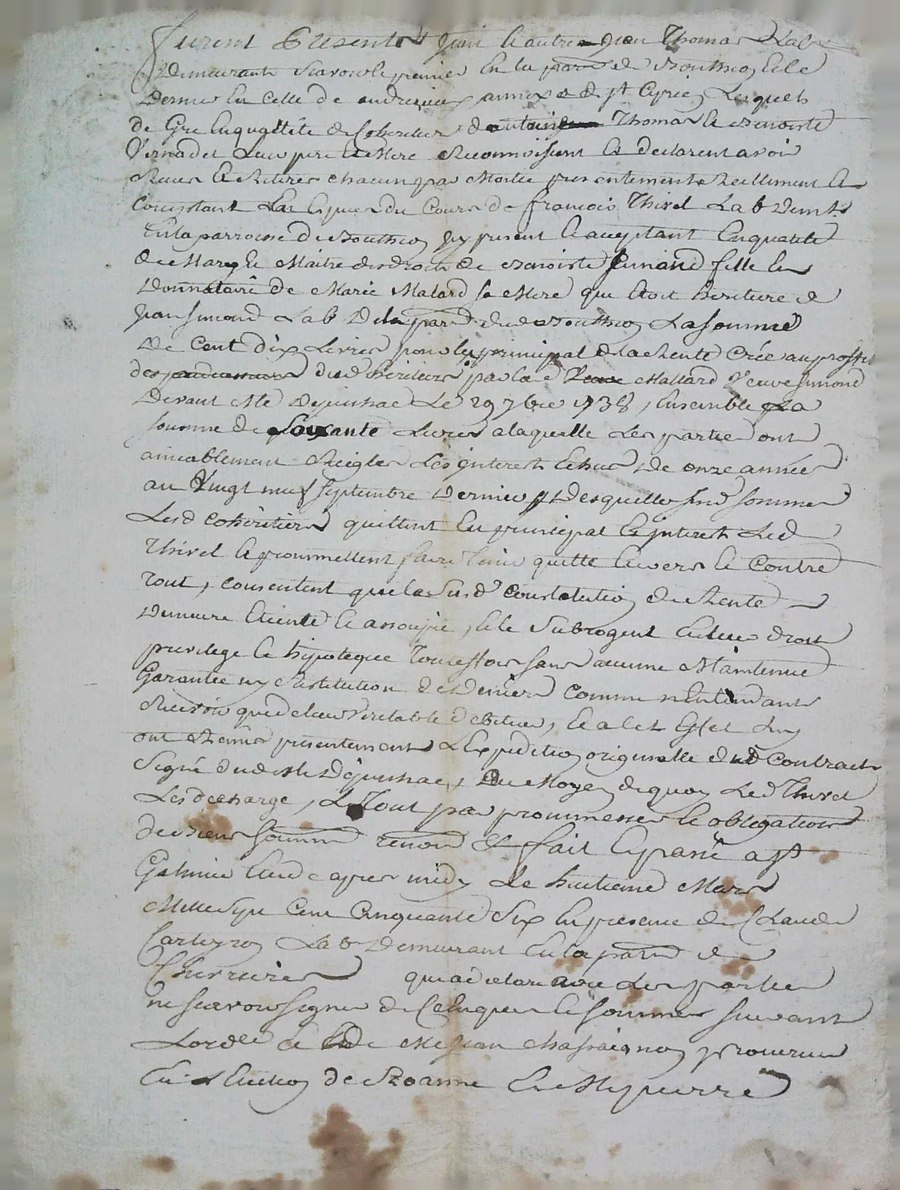 furent Presents Jean & autre Jean Thomas Lab
Demeurants scavoir le premier En la parr de Bouthéon & le
Dernier En Celle de andrezieux annexe de St Cyre, Lesquels
de Gre En quallité de Coheritiers d'antoine Thomas & Benoiste
Vernadet Leurs pere & Mere Reconnoissent & declarent avoir
Receu & Retirés chacun par Moitié presentement & Reellement &
Comptant des Especes du Cours de François Thivel Lab Demt
En la parroisse de Bouthéon icy present & acceptant En qualité
de Mary & Maitre des droits de Benoiste Simond fille &
Donnataire de Marie Malard sa Mere qui Etoit heritiere de
Jean Simond Lab De la parr dud Bouthéon La somme
De Cent dix Livres pour le principal de la Rente Créé au proffit
des dud heritiers par lad Mallard Veuve Simond
Devant Me Dejussac Le 29 7bre 1738, Ensemble La
somme de Soixante Livres a laquelle Les parties ont
amiablement Reiglés Les interests Echus De onze années
au Vingt neuf septembre Dernier Desquelles sommes
Lesd Coheritiers quittent En principal & interests Led
Thivel & prommettent faire tenir quitte Envers & Contre
Tout, consentent que la Susde Constitution de Rente
Demeure Eteinte & assoupie, & le Subrogent En leur droit
privilege & hipoteque Touteffois sans aucune Maintenue
Garantie ny Restitution de Deniers comme n'Entendants
Recevoir que de leur Veritable debiteur, & a Cet Effet luy
ont Remis presentement L'Expedition originalle dud Contract
Signé dud Me Dejussac, Au Moyen de quoy Led Thivel
Les decharge, Le Tout par prommesses & obligations
de Biens soumis renon & fait & passé a St
Galmier Etude apres midy Le huitieme Mars
Mille Sept Cent Cinquante Six En presence de Claude
Carteyron Lab Demeurant En la parr de
Chevrieres qui a declaré avec les parties
ne scavoir signer de Ce Enquis & sommés suivant
Lordce & de Me Jean Chassaignon procureur
En L'Election de Roanne